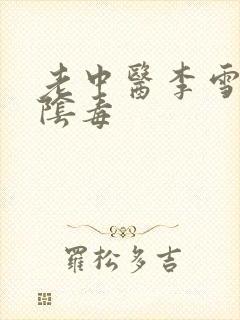 老中醫李雪
陰毒
羅松多吉